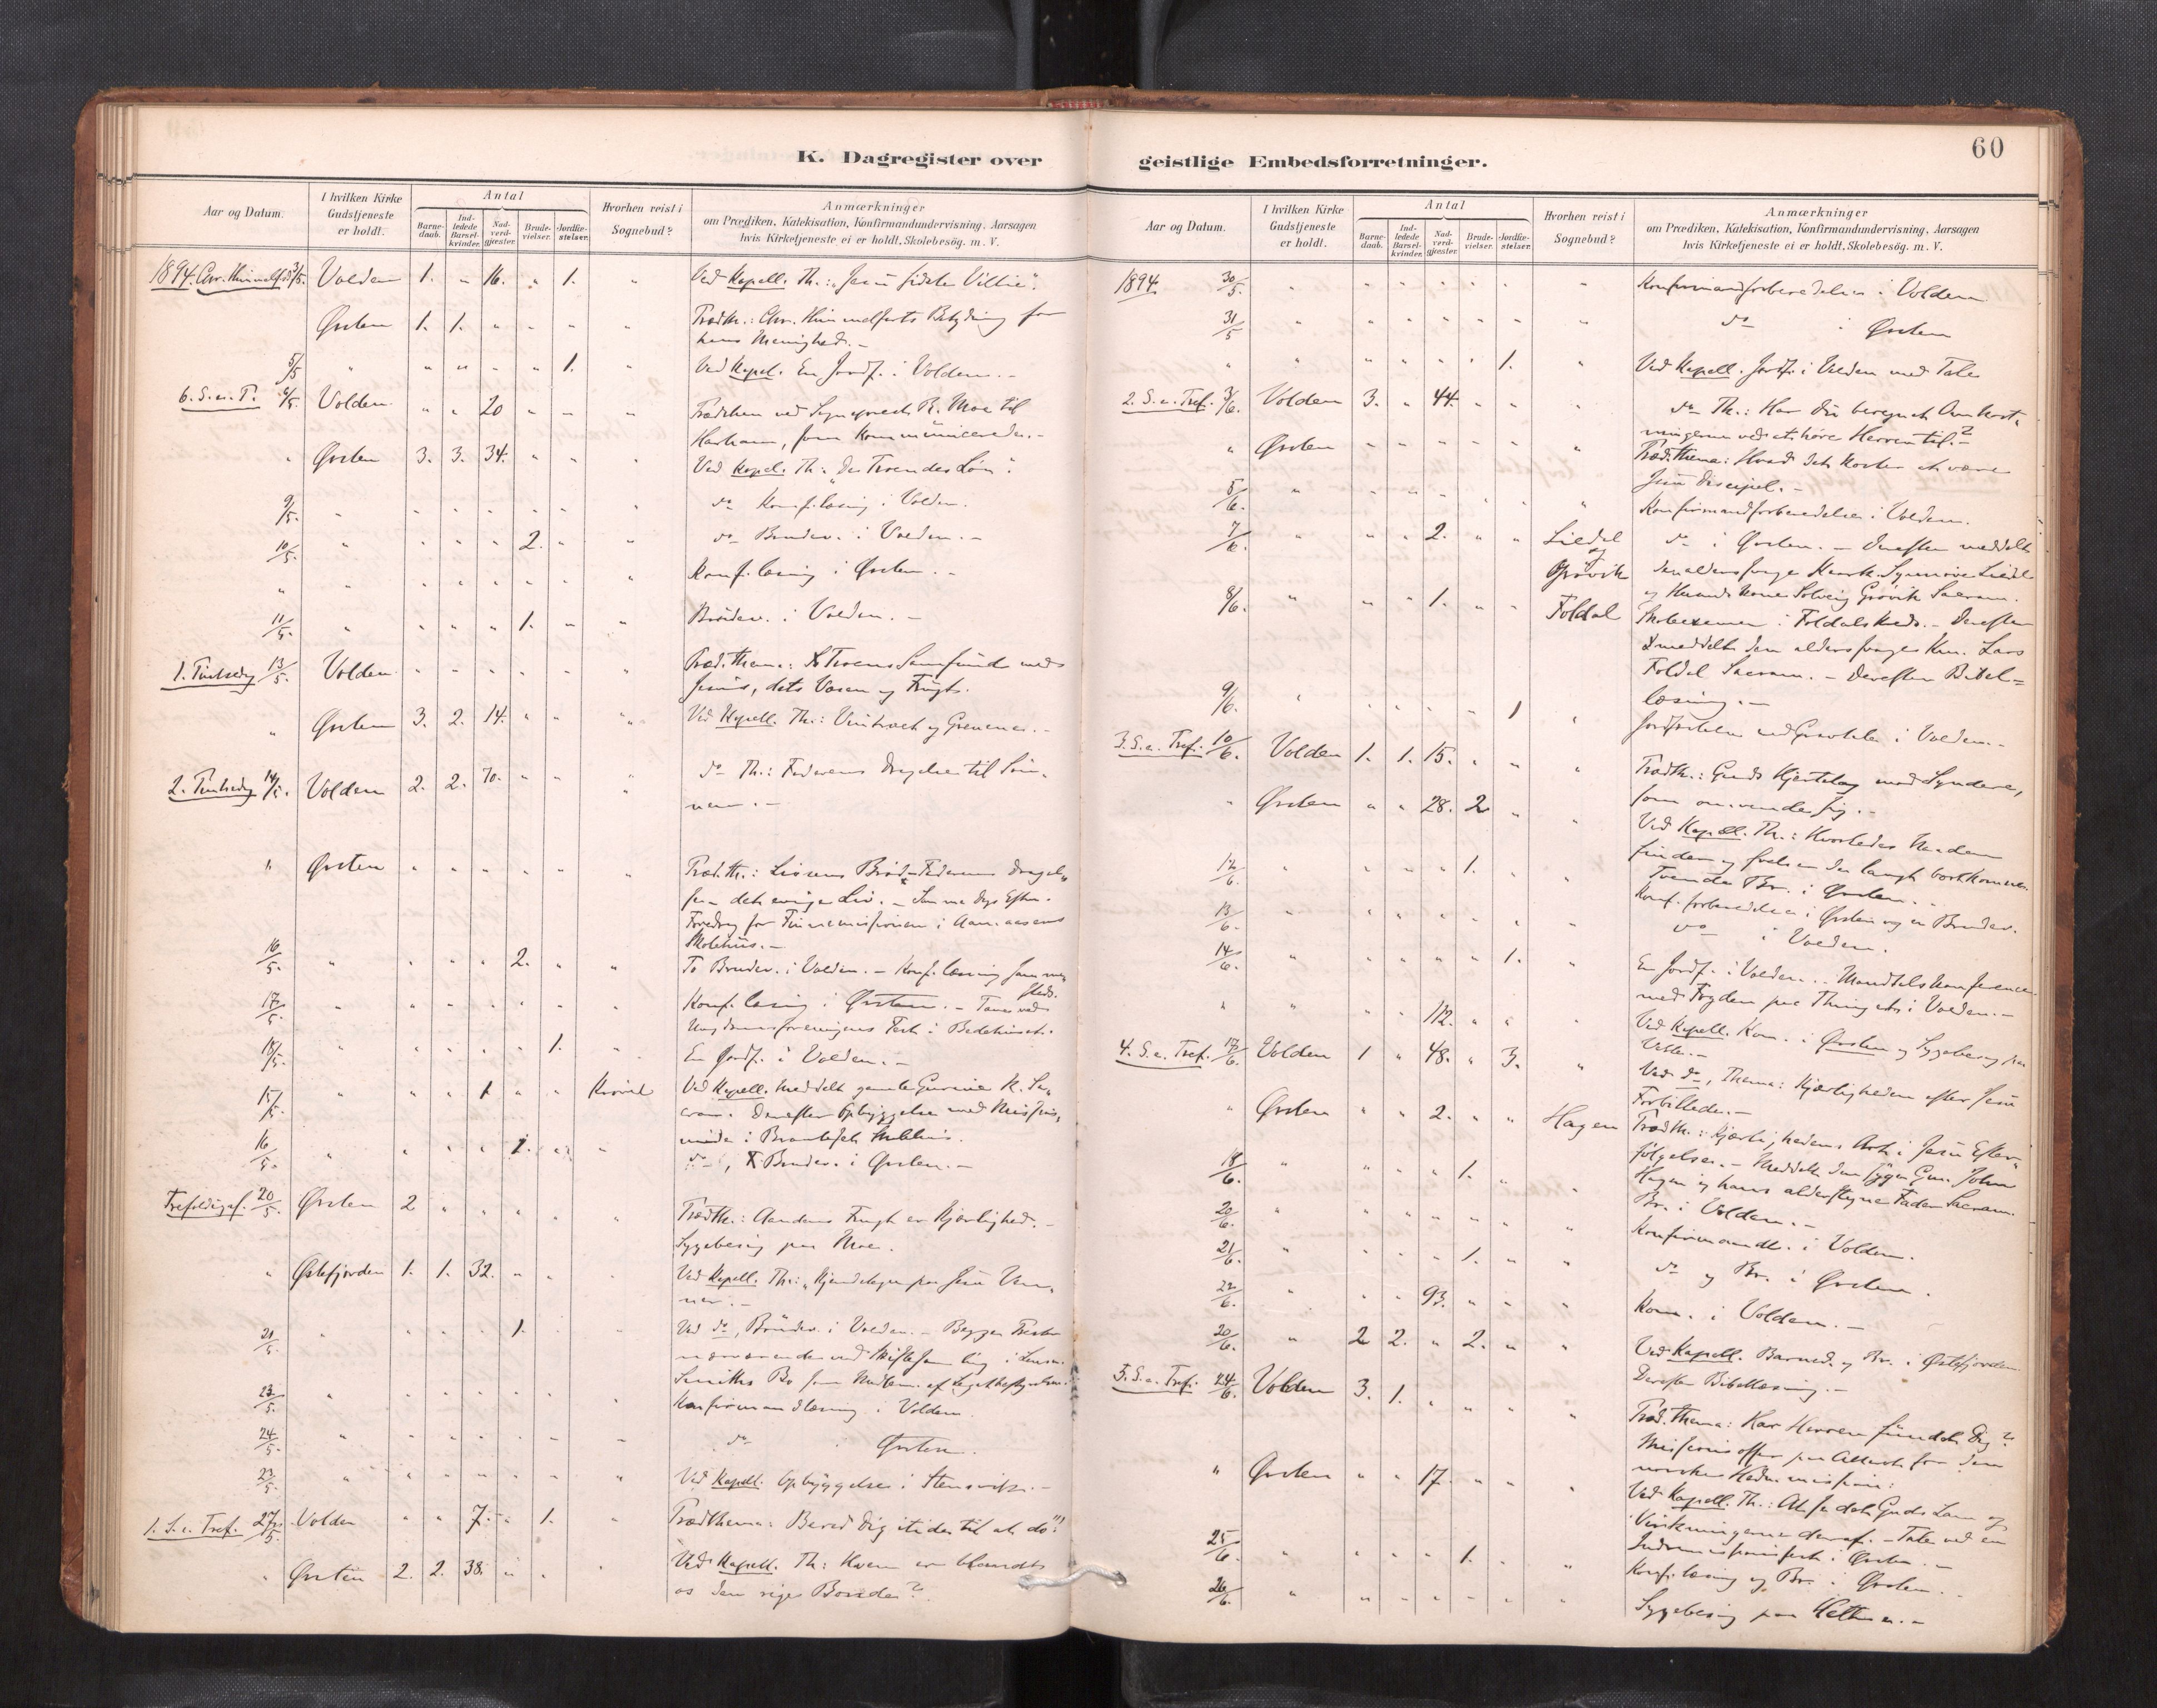 K. Dagregister over
Aar og Datum.
I hvilken Kirke Gudstjeneste er holdt.
Antal
Barne-daab.
Ind-ledede Barsel-kvinder.
Nad-verd-gjæster.
Brude-vielser.
Jordfæ-stelser.
Hvorhen reist i Sognebud?
Anmærkninger
om Prædiken, Katekisation, Konfirmandundervisning, Aarsagen
hvis Kirketjeneste ei er holdt, Skolebesøg. m. V.
1894. Chr. Himmelf. 3/5. Volden 1. " 16. " 1. " Ved Kapell. Th.: "Jesu sidste Villie".
Ørsten 1. 1. " " " " Præd.th.: Chr. Himmelfarts Betydning for
hans Menighed. -
5/5 " " " " " 1. " Ved Kapel. En Jordf. i Volden. -
6. S. e. P. 6/5. Volden " " 20 " " " Prædiken ved Sogneprest R. Moe til
Harham, som kommunicerede. -
" Ørsten 3. 3. 34. " " " Ved Kapel. Th.: "De Troendes Løn".
9/5. " " " " " " " do Konf.læsning i Volden.
10/5. " " " " 2. " " do Brudev. i Volden. -
" " " " " " " " Konf.læsning i Ørsten. -
11/5. " " " " 1. " " Brudev. i Volden. -
1. Pintsedag 13/5. Volden " " " " " " Præd. thema: Troens Samfund med
Jesus, dets Væsen og Frugt.
" Ørsten 3. 2. 14. " " " Ved Kapell. Th.: Vintræet og Grenene. -
2. Pintsedag 14/5. Volden 2. 2. 70. " " " do Th.: Faderens Dragelse til Søn-
nen. -
" Ørsten " " " " " Præd.th.: Livsens Brød - Faderens Dragel-
se - det evige Liv. - Samme Dags Efterm.
Foredrag for Finnemissionen i Aam-aasens
Skolehus. -
16/5. " " " " 2. " " To Brudev. i Volden. - Konf.læsning samme-
steds.
17/5. " " " " " " " Konf.læsning i Ørsten. - Talte ved
Ungdomsforeningens Fest i Bedehuset.
18/5. " " " " " 1. " En Jordf. i Volden. -
15/5. " " " 1 " " Krøvel Ved Kapell. Meddelt gamle Gurine K. Sa-
cram. Derefter Opbyggelse med Missions-
møde i Skolehus.
16/5. " " " " 1. " " do, Brudev. i Ørsten. -
Trefoldigf. 20/5. Ørsten 2 " " " " " Præd.th.: Aandens Frugt er Kjærlighed. -
Sygebesøg paa Moe.
" Østefjorden 1. 1. 32. " " Ved Kapell. Th.: "Kjendetegn paa Jesu Ven-
ner. -
21/5. " " " " 1. " Ved do, Brudev. i Volden. - Begge Prester
nærværende ved Skiftesamling i Lensm.
Bo som Medlem. af Legatbestyrelsen.
23/5. " " " " " " Konfirmandlæsning i Volden.
24/5. " " " " " " do i Ørsten.
23/5. " " " " " " Ved Kapell. Opbyggelse i Stensvik. -
1. S. e. Tref. 27/5. Volden " " 7. " 1. " Præd.thema: Bered dig itide til at dø!"
" Ørsten 2. 2. 38. " " " Ved Kapell. Th.: Hvem er blandt
os den rige Bonde?
60
geistlige Embedsforretninger.
Aar og Datum.
I hvilken Kirke Gudstjeneste er holdt.
Antal
Barne-daab.
Ind-ledede Barsel-kvinder.
Nad-verd-gjæster.
Brude-vielser.
Jordfæ-stelser.
Hvorhen reist i Sognebud?
Anmærkninger
om Prædiken, Katekisation, Konfirmandundervisning, Aarsagen
hvis Kirketjeneste ei er holdt, Skolebesøg. m. V.
1894. 30/5. " " " " " " " Konfirmandforberedelse i Volden
31/5 " " " " " " " do i Ørsten
" " " " " " 1. " Ved Kapell. Jordf. i Volden med Tale
2. S. e. Tref. 3/6. Volden 3. " 44. " " " do Th.: Har du beregnet Omkost-
ningerne ved at høre Herren til? -
" Ørsten " " " " " Præd.thema: Hvad det koster at være
Jesu Discipel. -
5/6. " " " " " " " Konfirmandforberedelse i Volden.
7/6. " " " 2. " " Liedal og Grøvik do i Ørsten. - Derefter meddelt
den aldersvage Synnøve Liedal
og Solveig Grøvik Sacram.
8/6. " " " 1. " " Foldal Skoleexamen i Foldals Kreds. - Derefter
meddelt den aldersvage Lars
Foldal Sacram. - Derefter Bibel-
læsning. -
9/6. " " " " " 1 " Jordfæstelse med Gravtale i Volden. -
3. S. e. Tref. 10/6. Volden 1. 1. 15. " " " Præd.th.: Guds Hjertelag mod Syndere,
som omvende sig. -
" Ørsten " " 28. 2 " " Ved Kapell. Th.: Hvorledes Naaden
finder og frelser den langt bortkomne.
Tvende Br. i Ørsten. -
12/6. " " " " 1. " " Konf.forberedelse i Ørsten og en Brudev.
13/6. " " " " " " " do i Volden.
14/6. " " " " " 1. " En Jordf. i Volden. - Mandtalskonference
med Fogden paa Thinget i Volden. -
" " " " 112. " " " Ved Kapell. Kom. i Ørsten og Sygebesøg paa
4. S. e. Tref. 17/6. Volden 1 " 48. " 3. " Ved do, Thema: Kjærligheden efter Jesu
Forbillede. -
" Ørsten " " 2. " " Hagen Præd.th.: Kjærlighedens Art i Jesu Efter-
følgelse. - Meddelt den syge Gm. John
Hagen og hans alderstegne Fader Sacram.
18/6. " " " " 1. " " Br. i Volden. -
20/6. " " " " " " " Konfirmandl. i Volden.
21/6. " " " " 1. " " do og Br. i Ørsten.
22/6. " " " 93. " " " Kom. i Volden. -
20/6. " 2 2. " 2. " " Ved Kapell. Barned. og Br. i Østefjorden
Derefter Bibellæsning. -
5. S. e. Tref. 24/6. Volden 3. 1. " " " " Præd.thema: Har Herren fundet Dig?
Missionsoffer paa Alteret for den
norske Hedn.mission.
" Ørsten " " 17. " " " Ved Kapell. Th.: At se det Guds Lam og
Virkningerne deraf. - Tale ved en
Indremissionsfest i Ørsten. -
25/6. " " " " 1. " " Konf.læsning og Br. i Ørsten. -
26/6. " " " " " " " Sygebesøg paa